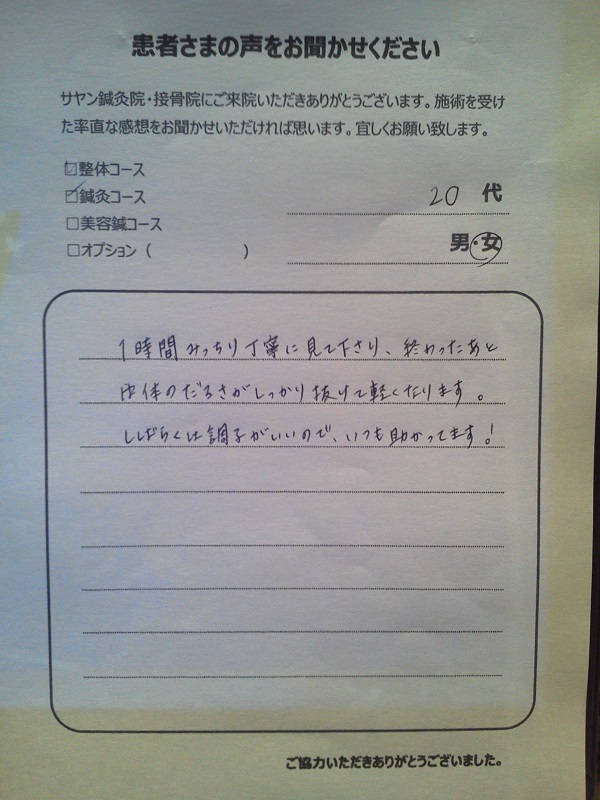 患者さまの声をお聞かせください
サヤン鍼灸院・接骨院にご来院いただきありがとうございます。施術を受け
た率直な感想をお聞かせいただければ思います。宜しくお願い致します。
☑整体コース
☑鍼灸コース
□美容鍼コース
□オプション（　　　　　　）
20 代
男・女
1時間みっちり丁寧に見て下さり、終わったあと
体のだるさがしっかり抜けて軽くなります。
しばらくは調子がいいので、いつも助かってます!
ご協力いただきありがとうございました。